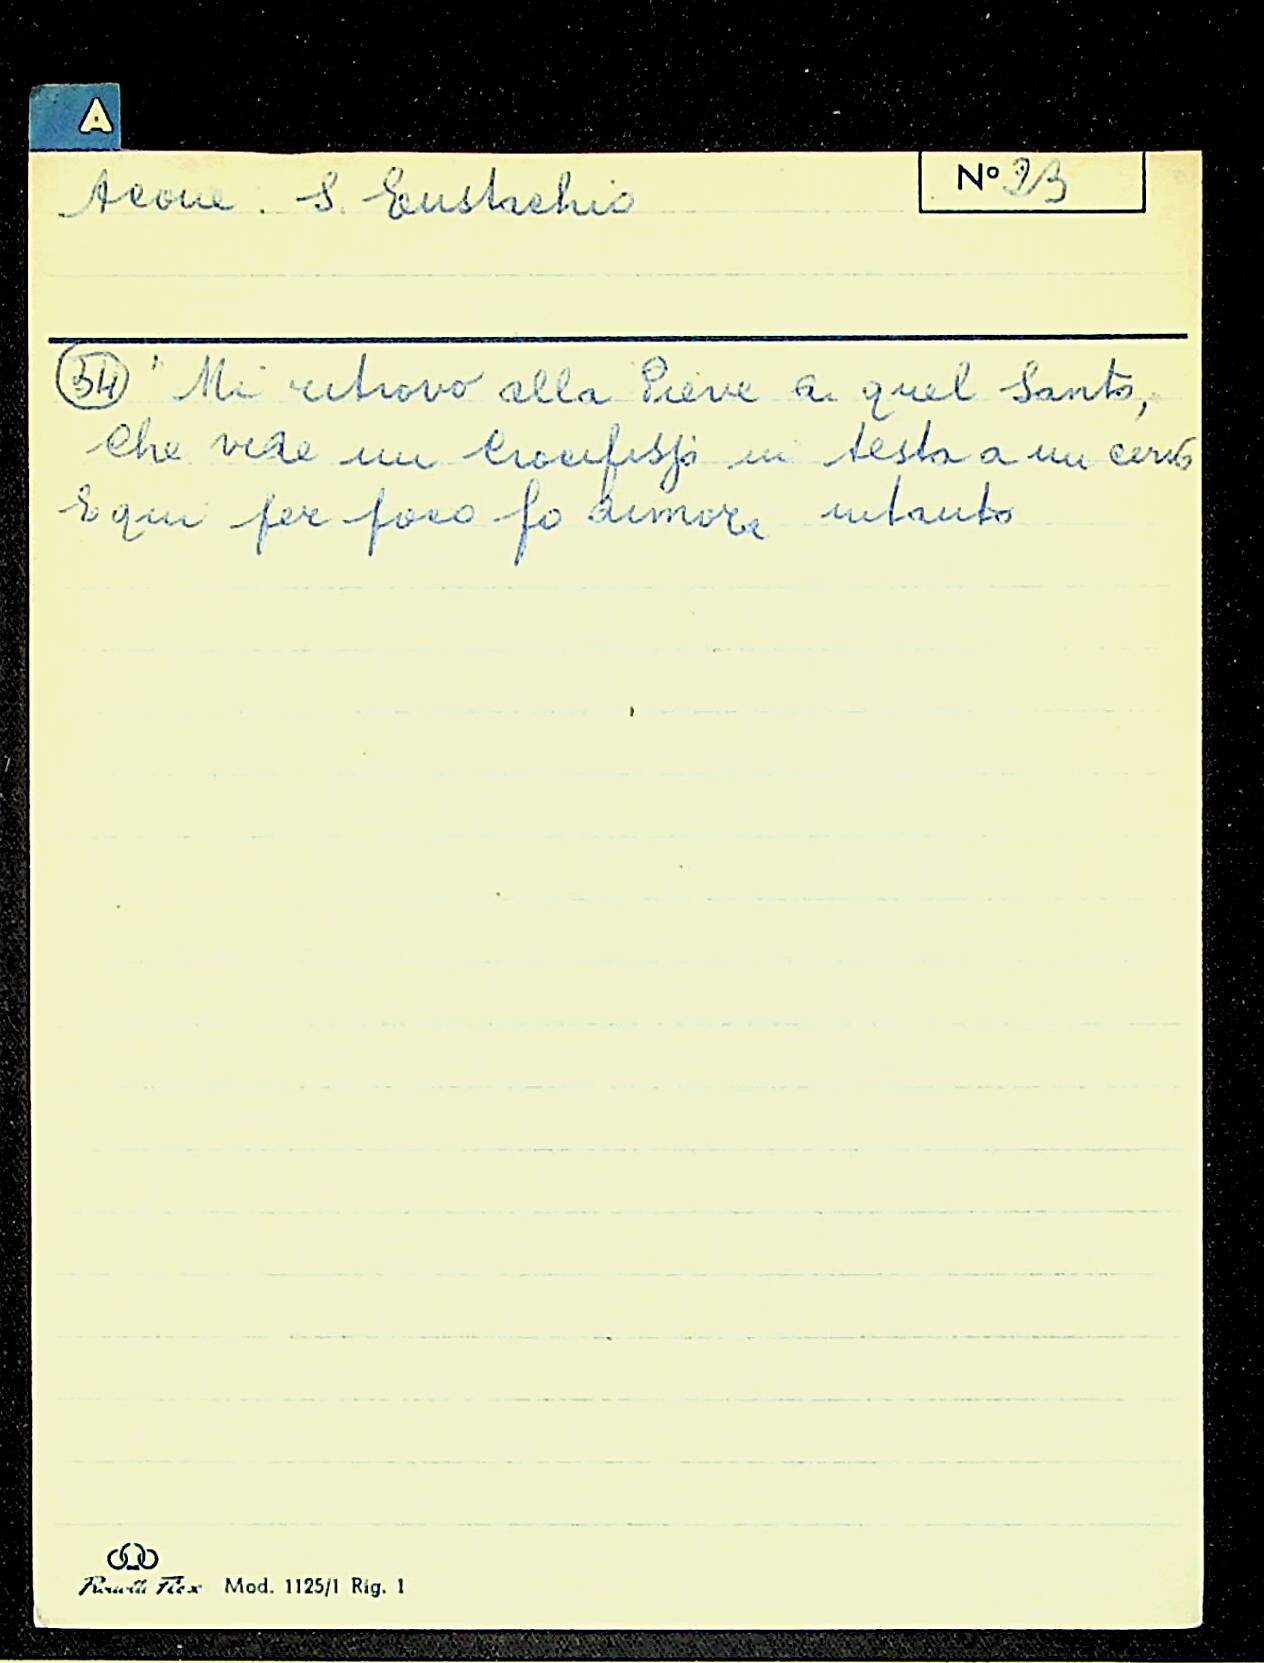 A
Acone. S. Eustachio
N° 23
54 "Mi ritrovo alla Pieve di quel Santo,
Che vide un Crocifisso in testa a un cervo
E qui per poco fo dimora intanto
Mod. 1125/1 Rig. 1